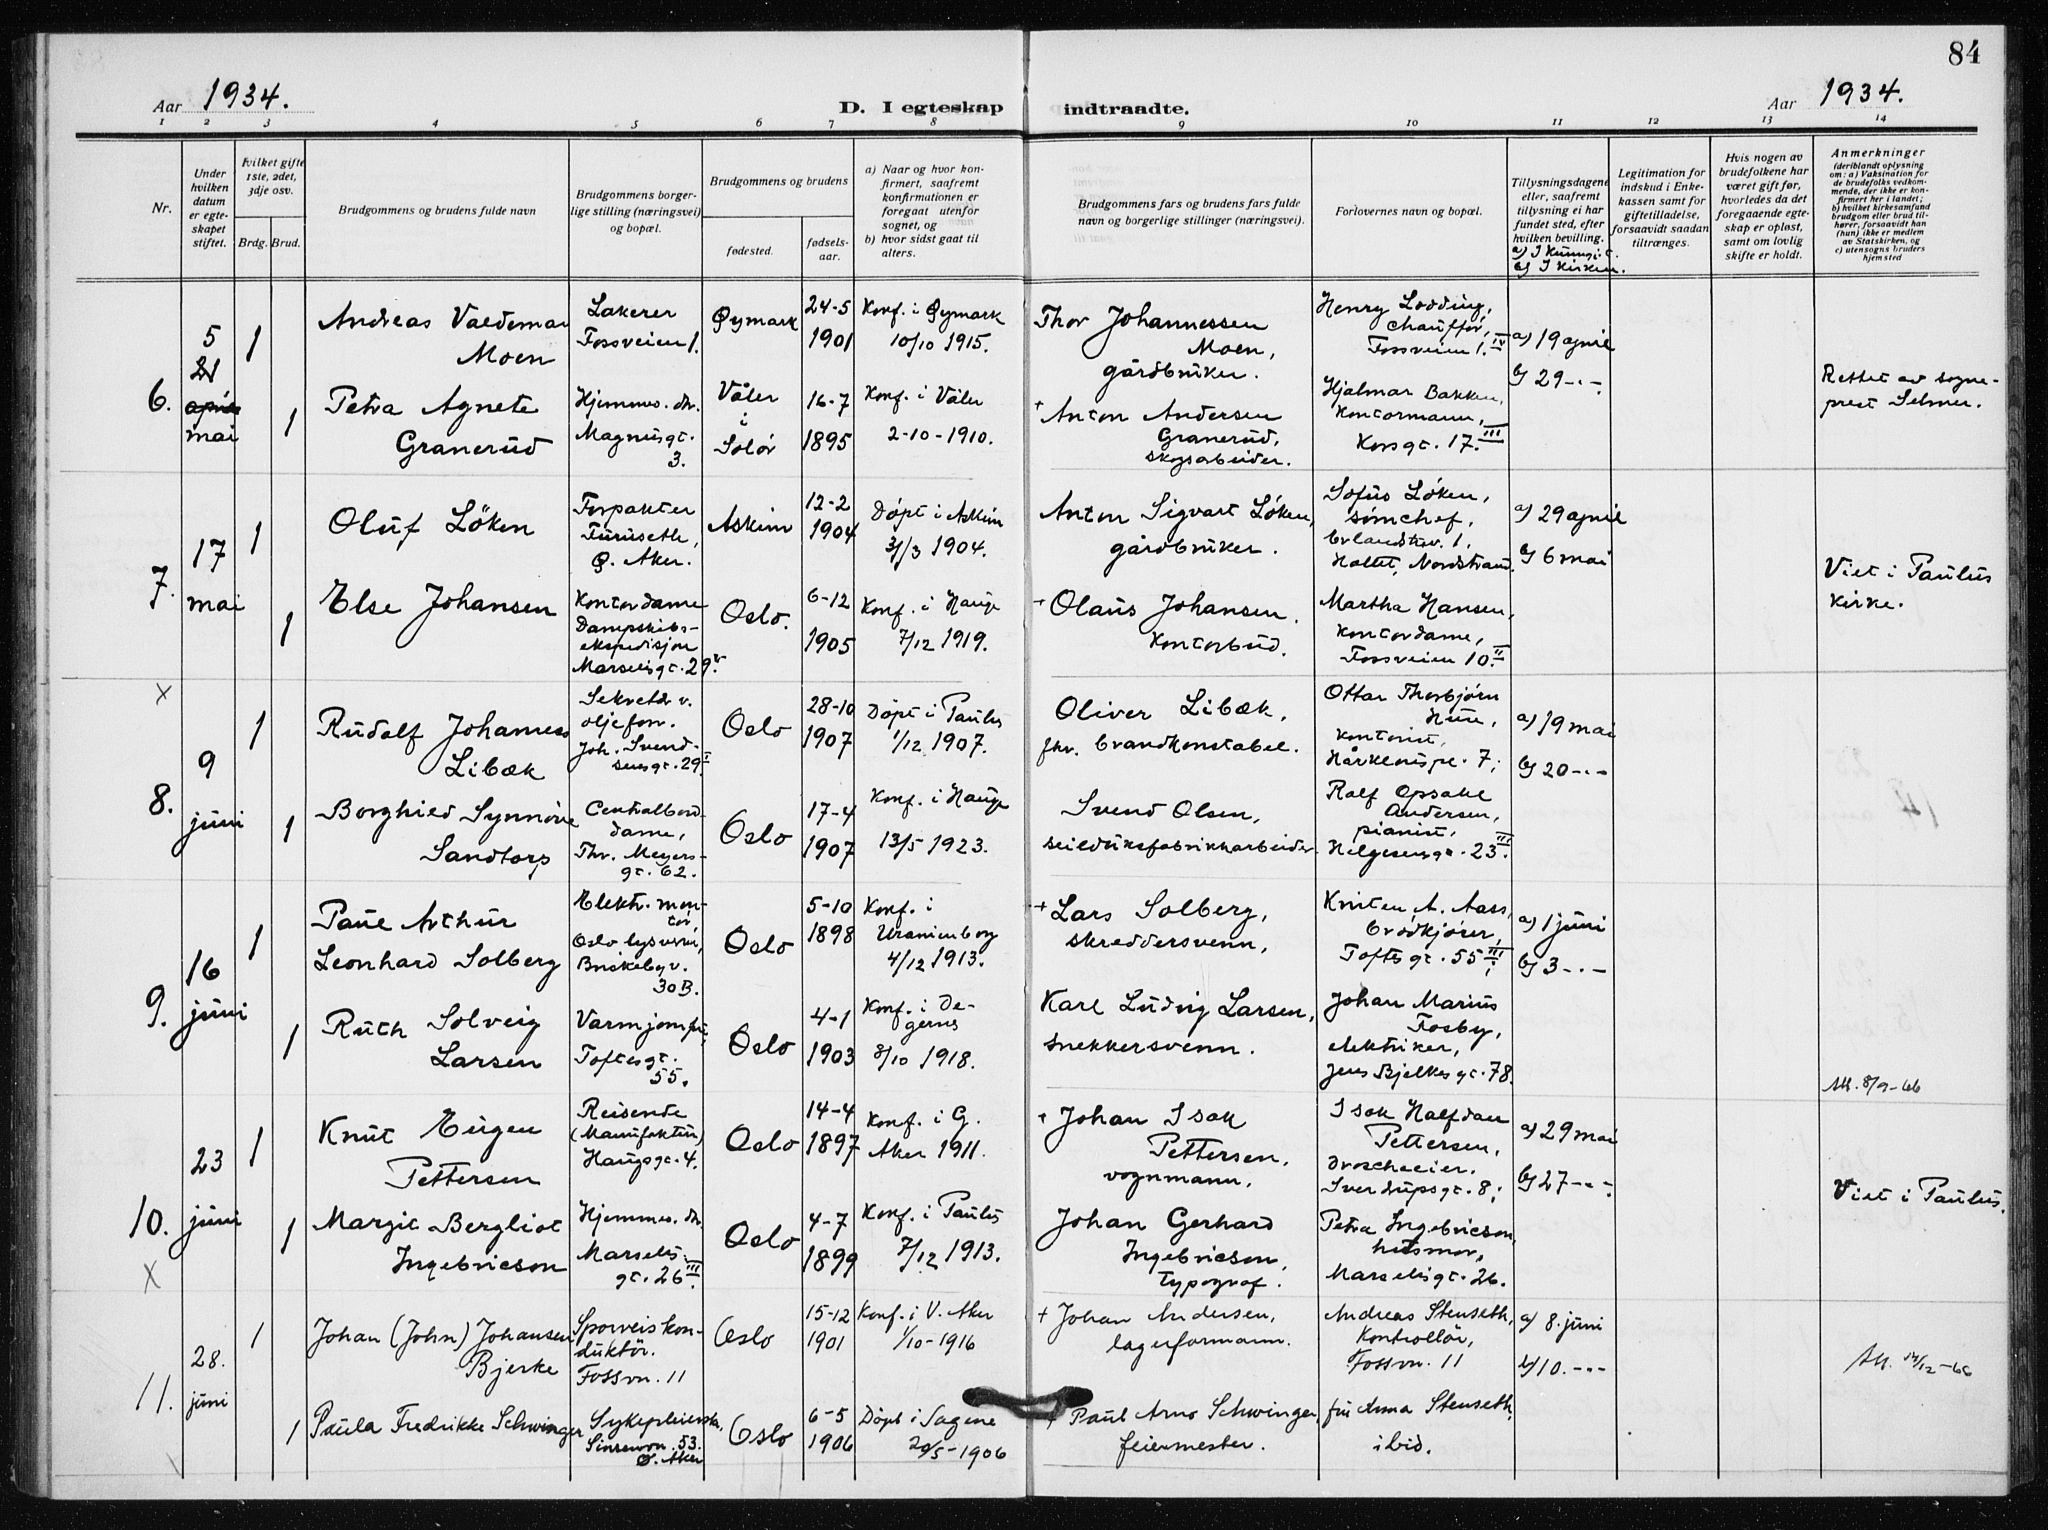 84
Aar 1934.
D. I egteskap indtraadte.
Aar 1934.
1 2 3 4 5 6 7 8 9 10 11 12 13 14
Nr.
Under
hvilken
datum
er egte-
skapet
stiftet.
Hvilket gifte
1ste, 2det,
3dje osv.
Brdg. Brud.
Brudgommens og brudens fulde navn
Brudgommens borger-
lige stilling (næringsvei)
og bopæl.
Brudgommens og brudens
fødested.
fødsels-
aar.
a) Naar og hvor kon-
firmert, saafremt
konfirmationen er
foregaat utenfor
sognet, og
b) hvor sidst gaat til
alters.
Brudgommens fars og brudens fars fulde
navn og borgerlige stillinger (næringsvei).
Forlovernes navn og bopæl.
Tillysningsdagene
eller, saafremt
tillysning ei har
fundet sted, efter
hvilken bevilling.
b) I Kirken.
Legitimation for
indskud i Enke-
kassen samt for
giftetilladelse,
forsaavidt saadan
tiltrænges.
Hvis nogen av
brudefolkene har
været gift før,
hvorledes da det
foregaaende egte-
skap er opløst,
samt om lovlig
skifte er holdt.
Anmerkninger
(deriblandt oplysning
om: a) Vaksination for
de brudefolks vedkom-
mende, der ikke er kon-
firmert her i landet;
b) hvilket kirkesamfund
brudgom eller brud til-
hører, forsaavidt han
(hun) ikke er medlem
av Statskirken, og
c) utensogns bruders
hjemsted
6.
5
21
april
mai
1
Andreas Valdemar
Moen
Lakerer
Fossveien 1.
Øymark
24-5
1901
Konf. i Øymark
10/10 1915.
Thor Johannessen
Moen,
gårdbruker.
Henry Lodding,
chauffør,
Fossveien 1. IV
a) 19 april
b) 29 -"-
1
Petra Agnete
Granerud
Hjemmev. dr.
Magnusgt.
3.
Våler
i
Solør
16-7
1895
Konf. i Våler
2-10-1910.
+ Anton Andersen
Granerud,
skogsarbeider.
Hjalmar Bakken,
Kontormann,
Korsgt. 17. III
Rettet av sogne-
prest Selmer.
7.
17
mai
1
Oluf Löken
Forpakter
Furuseth,
Ø. Aker.
Askim
12-2
1904
Döpt i Askim
3/3 1904.
Anton Sigvart Löken,
gårdbruker.
Sofus Löken,
Holtet, Nordstrand.
a) 29 april
b) 6 mai
1
Else Johansen
Kontordame
Dampskibs-
ekspedisjon
Marselisgt. 29 V.
Oslo.
6-12
1905
Konf. i Hauge
7/12 1919.
+ Olaus Johansen.
Kontorbud.
Martha Hansen,
Kontordame,
Fossveien 10. II
Viet i Paulus
Kirke.
x
8.
9
juni
1
Rudolf Johannes
Libæk
Sekretær v.
oljeforr.
Joh. Svend-
sensgt. 29 I.
Oslo
28-10
1907
Döpt i Paulus
1/12 1907.
Oliver Libæk,
fhv. brandkonstabel.
Ottar Thorbjörn
kontorist,
7;
a) 19 mai
b) 20 -"-
1
Borghild Synnöve
Sandtorp
Centralbord-
dame,
Thv. Meyers-
gt. 62.
Oslo
17-4
1907
Konf. i Hauge
13/5 1923.
Svend Olsen,
seilduksfabrikkarbeider.
Ralf Opsahl
Andersen,
pianist,
Helgesensgt. 23. III
9.
16
juni
1
Paul Arthur
Leonhard Solberg
Elektr. mon-
tör,
Oslo lysverk,
Briskebyv.
30 B.
Oslo
5-10
1898
Konf. i
Uranienborg
4/12 1913.
+ Lars Solberg,
skreddersvenn,
Knuten A. Aass,
brödkjører,
Toftesgt. 55 III;
a) 1 juni
b) 3 -"-
1
Ruth Solveig
Larsen
Varmjomfr,
Toftesgt.
55.
Oslo
4-1
1903
Konf. i De-
gernes
8/10 1918.
Karl Ludvig Larsen,
snekkersvenn.
Johan Marius
Fosby,
elektriker,
Jens Bjelkesgt. 78.
Att. 8/9-66
10.
23
juni
1
Knut Eugen
Pettersen
Reisende
(Manufaktur)
Haugsgt. 4.
Oslo
14-4
1897
Konf. i G.
Aker 1911.
+ Johan Isak
Pettersen,
vognmann,
Isak Halfdan
Pettersen,
droscheeier.
Sverdrupsgt. 8;
a) 29 mai
b) 27 -"-
1
Margit Bergliot
Ingebricson
Hjemmev. dr.
Marselis-
gt. 26 III.
Oslo
4-7
1899
Konf. i Paulus
7/12 1913.
Johan Gerhard
Ingebricson,
typograf.
Petra Ingebricson,
husmor,
Marselisgt. 26.
Viet i Paulus.
X
11.
28.
juni
1
Johan (John) Johansen
Bjerke
Sporveiskon-
duktör.
Fossvn. 11
Oslo
15-12
1901
Konf. i V. Aker
1/10-1916
+ Johan Andersen,
lagerformann.
Andreas Stenseth,
Kontrollör,
Fossvn. 11
a) 8. juni
b) 10. -"-
1
Paula Fredrikke Schwinger
Sykepleierske,
Sinsenvn. 53.
Ø. Aker
Oslo
6-5
1906
Döpt i Sagene
20/5-1906
+ Paul Arno Schwinger,
feiermester.
fru Anna Stenseth,
ibid.
Att. 14/12-66